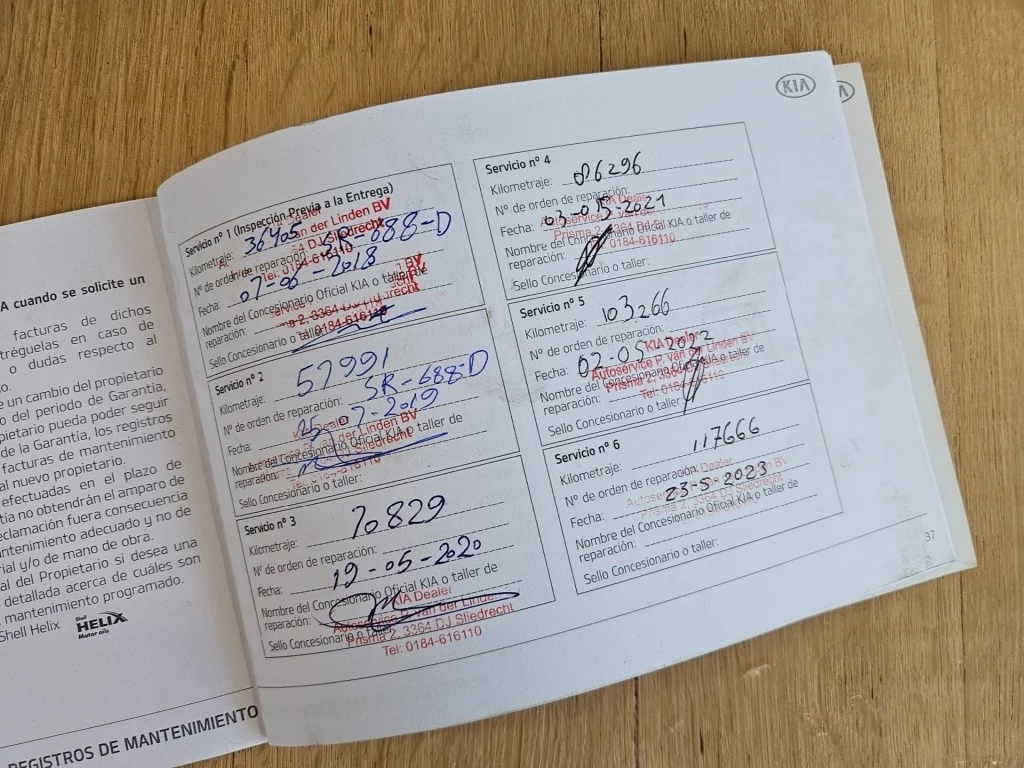 A cuando se solicite un
facturas de dichos
tréguelas en caso de
o dudas respecto al
o.
e un cambio del propietario
o del periodo de Garantía,
pietario pueda poder seguir
de la Garantía, los registros
facturas de mantenimiento
al nuevo propietario.
efectuadas en el plazo de
tía no obtendrán el amparo de
eclamación fuera consecuencia
antenimiento adecuado y no de
rial y/o de mano de obra.
al del Propietario si desea una
detallada acerca de cuáles son
mantenimiento programado.
Shell Helix
Shell
HELIX
Motor oils
REGISTROS DE MANTENIMIENTO
KIA
Servicio nº 1 (Inspección Previa a la Entrega)
Kilometraje: 36405
Nº de orden de reparación: SR-688-D
Fecha: 07-06-2018
Nombre del Concesionario Oficial KIA o taller de
reparación:
Sello Concesionario o taller:
van der Linden BV
DJ Sliedrecht
Tel: 0184-616110
2, 3364 DJ Sliedrecht
0184-616110
Servicio nº 2
Kilometraje: 57991
Nº de orden de reparación: SR-688-D
Fecha: 25-07-2019
Nombre del Concesionario Oficial KIA o taller de
reparación:
Sello Concesionario o taller:
van der Linden BV
DJ Sliedrecht
Servicio nº 3
Kilometraje: 70829
Nº de orden de reparación:
Fecha: 19-05-2020
Nombre del Concesionario Oficial KIA o taller de
reparación:
Sello Concesionario o taller:
KIA Dealer
Autoservice P. van der Linde
Prisma 2, 3364 DJ Sliedrecht
Tel: 0184-616110
Servicio nº 4
Kilometraje: 86296
Nº de orden de reparación:
Fecha: 03-05-2021
Nombre del Concesionario Oficial KIA o taller de
reparación:
Sello Concesionario o taller:
KIA Dealer
Autoservice P. van de
Prisma 2, 3364 DJ
0184-616110
Servicio nº 5
Kilometraje: 103266
Nº de orden de reparación:
Fecha: 02-05-2022
Nombre del Concesionario Oficial KIA o taller de
reparación:
Sello Concesionario o taller:
KIA Dealer
Autoservice P. van der Linden BV
Prisma 2, 3364 DJ Sliedrecht
Tel: 0184-616110
Servicio nº 6
Kilometraje: 117666
Nº de orden de reparación:
Fecha: 23-5-2023
Nombre del Concesionario Oficial KIA o taller de
reparación:
Sello Concesionario o taller:
Dealer
BV
3364 DJ Sliedrecht
37